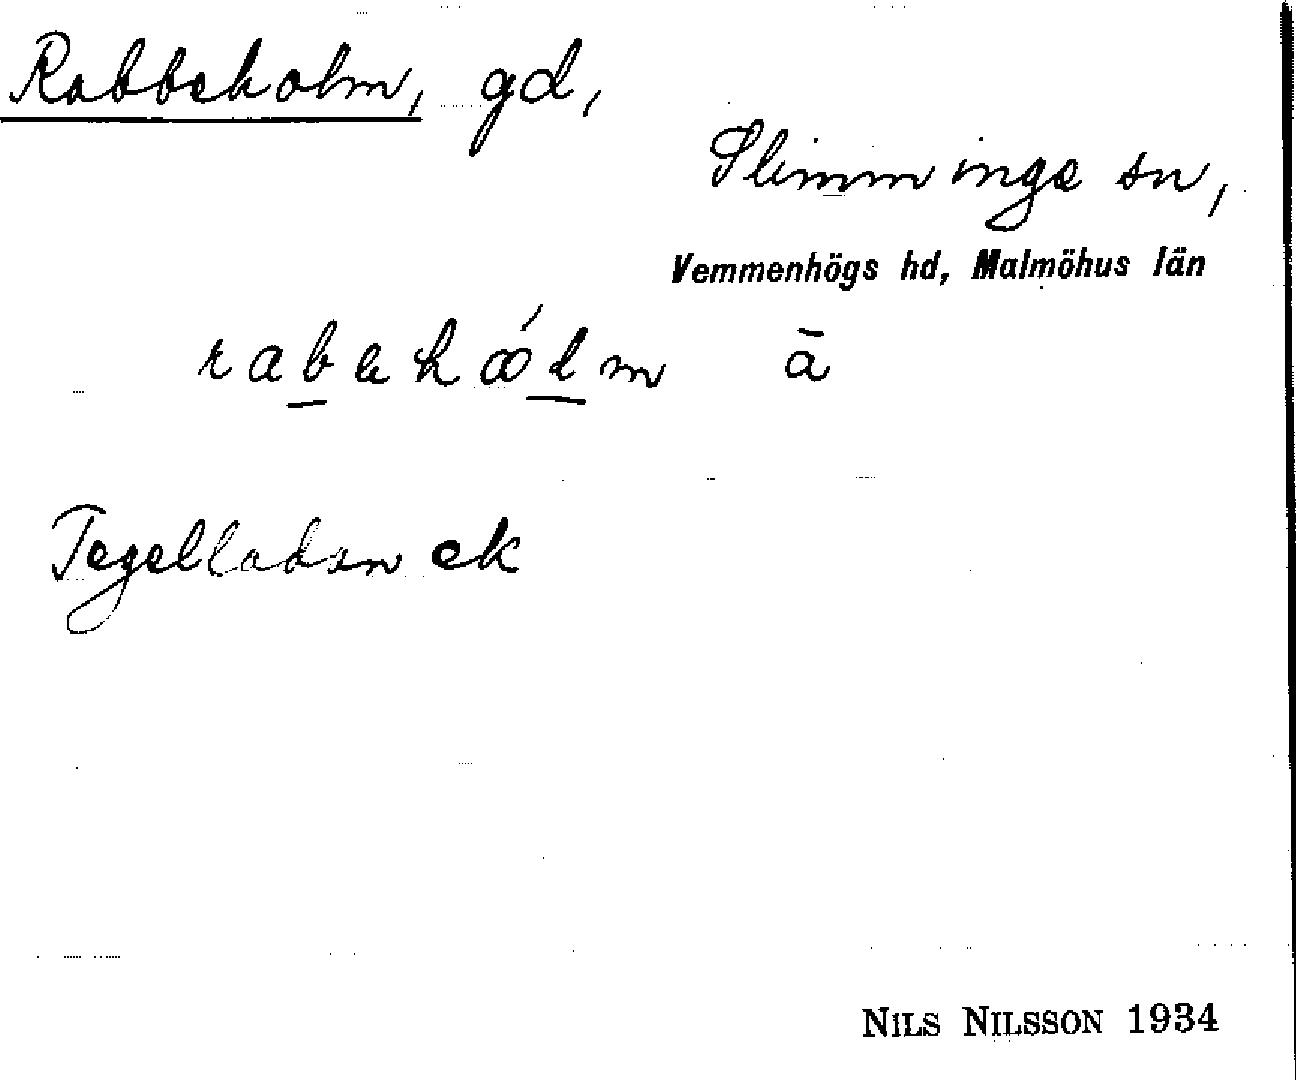 Rabbeholm, gd,
Slimminge sn,
Vemmenhögs hd, Malmöhus län
ā
Tegelladan ek
NILS NILSSON 1934